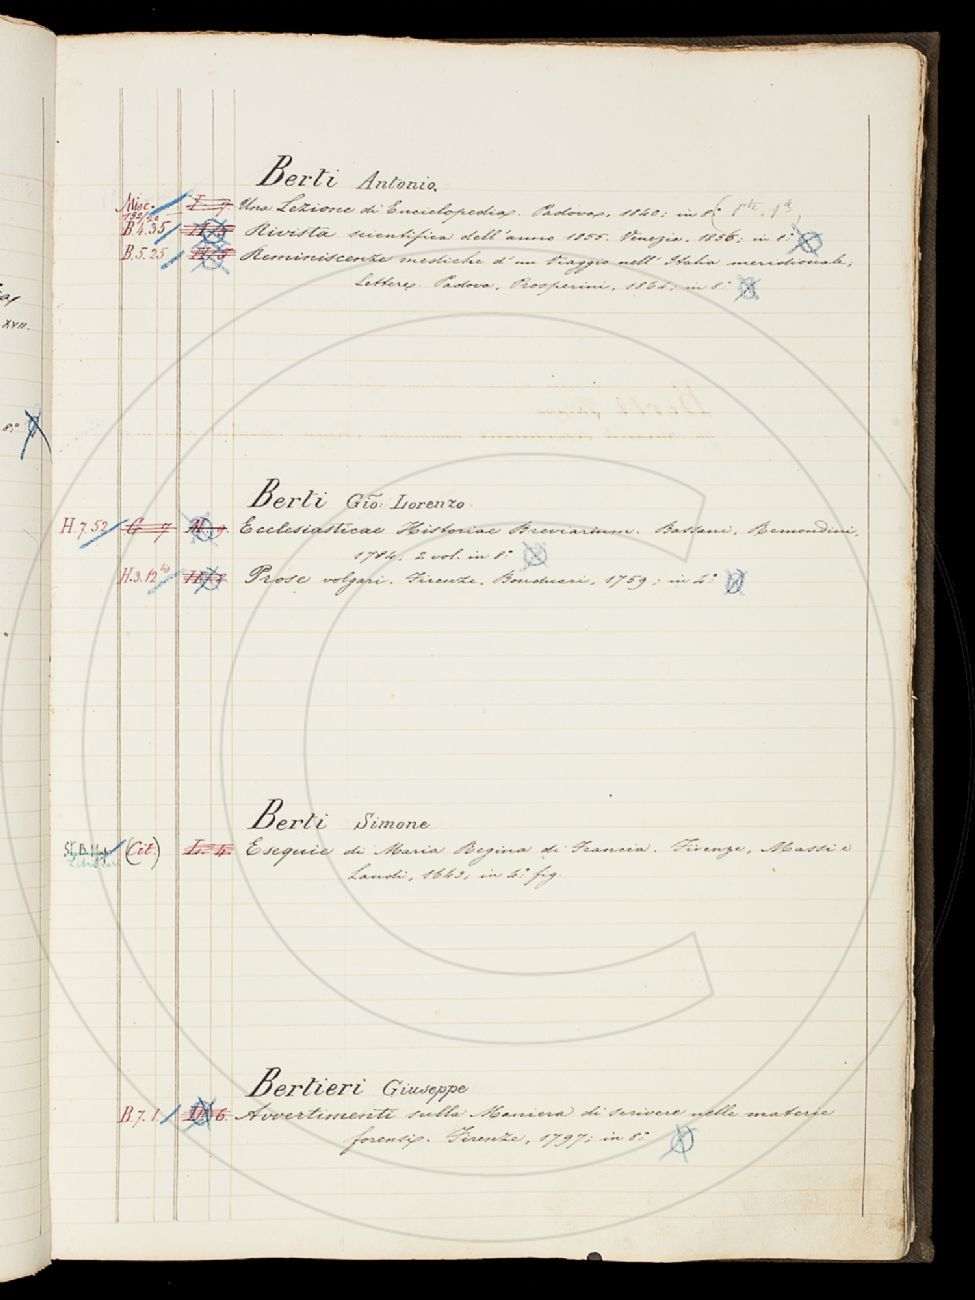 Berti Antonio.
Misc. I 7 Una Lezione di Enciclopedia. Padova, 1840; in 8.° (Pte. 1ª)
B.4.35 H 5 Rivista scientifica dell'anno 1855. Venezia, 1856; in 8.°
B.5.25 H 5 Reminiscenze mediche d'un Viaggio nell'Italia meridionale,
Lettere. Padova, Prosperini, 1862; in 8.°
XVII.
8.°
Berti Gio: Lorenzo
H.7.52 G 7 H. 9. Ecclesiasticae Historiae Breviarium. Bassani, Remondini,
1784, 2 vol. in 8.°
H.3.12 Prose volgari. Firenze, Bonducci, 1759; in 4.°
Berti Simone
(Cit.) L. 4. Esequie di Maria Regina di Francia. Firenze, Massi e
Landi, 1643; in 4.° fig.
Bertieri Giuseppe
B.7.1 6. Avvertimenti sulla Maniera di scrivere nelle materie
forensi. Firenze, 1797; in 8.°